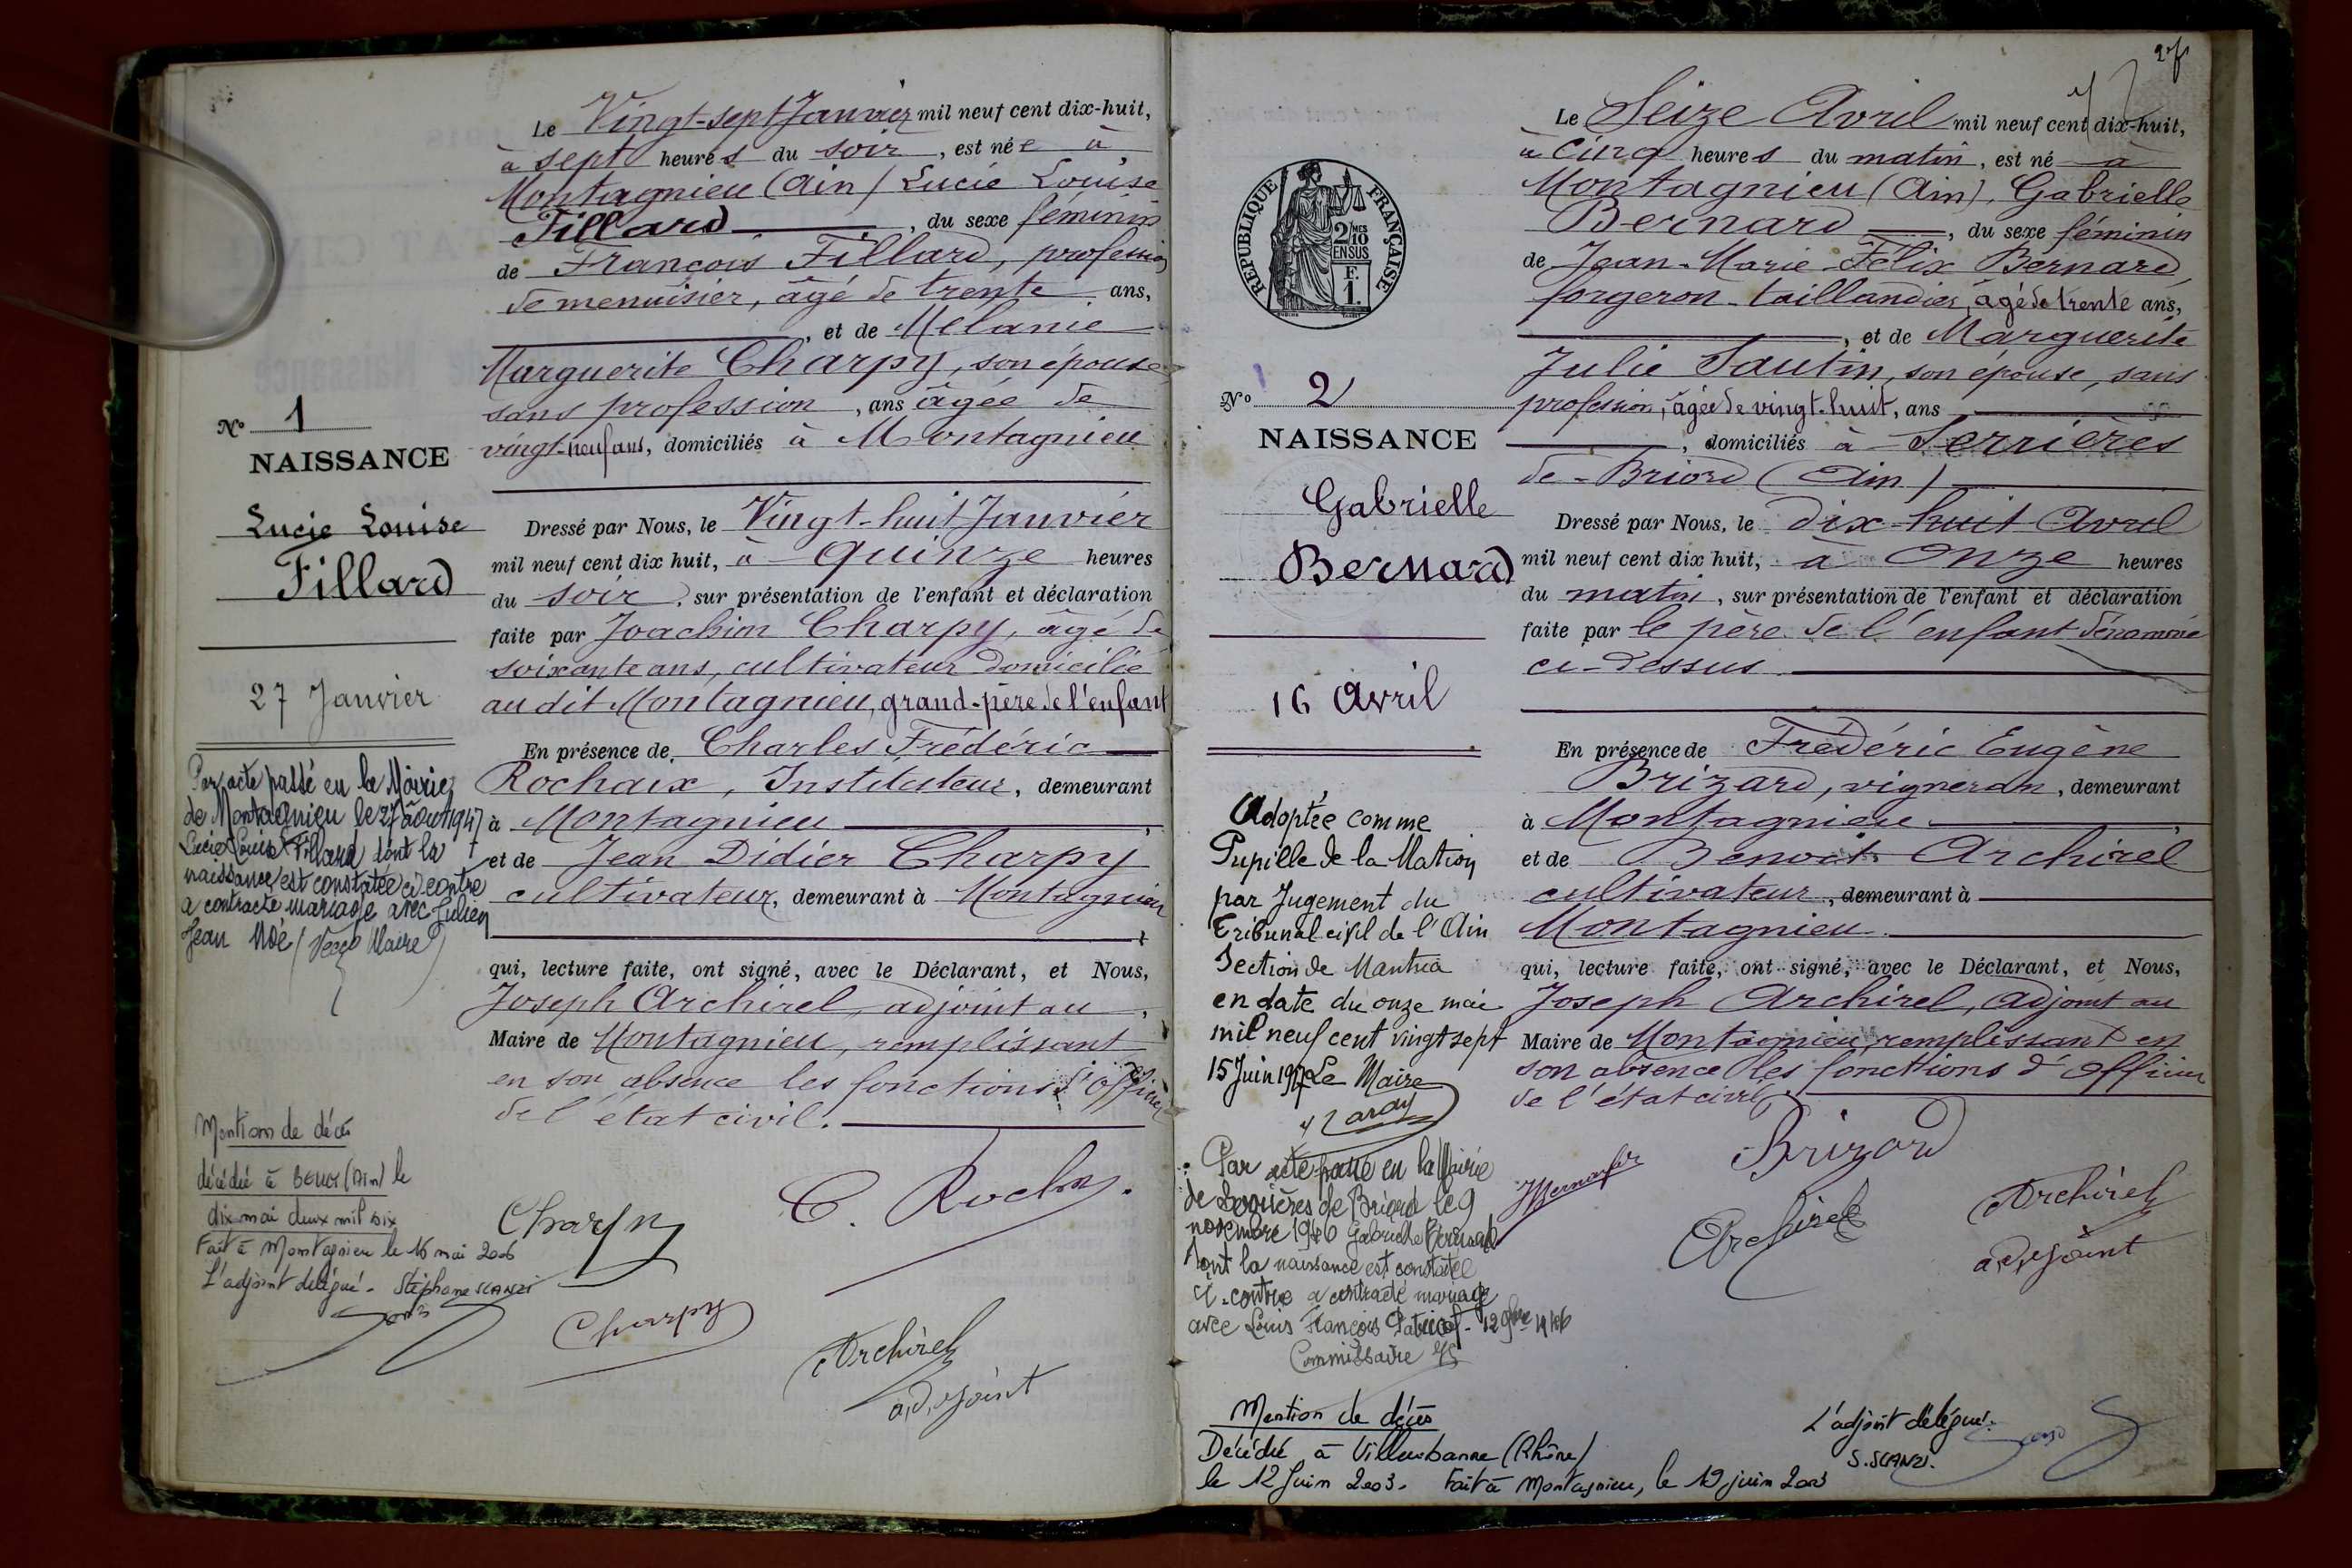 Le Vingt-sept Janvier mil neuf cent dix-huit,
à sept heures du soir, est née à
Montagnieu (Ain) Lucie Louise
Fillard, du sexe féminin
de François Fillard, profession
de menuisier, âgé de trente ans,
et de Mélanie
Marguerite Charpy, son épouse
sans profession, ans âgée de
vingt-neuf ans, domiciliés à Montagnieu
No 1
NAISSANCE
Lucie Louise
Fillard
27 Janvier
Dressé par Nous, le Vingt-huit Janvier
mil neuf cent dix huit, à quinze heures
du soir, sur présentation de l'enfant et déclaration
faite par Joachim Charpy, âgé de
soixante ans, cultivateur domicilié
au dit Montagnieu, grand-père de l'enfant
En présence de Charles Frédéric
Rochaix, Instituteur, demeurant
à Montagnieu
et de Jean Didier Charpy
cultivateur, demeurant à Montagnieu
qui, lecture faite, ont signé, avec le Déclarant, et Nous,
Joseph Archirel, adjoint au
Maire de Montagnieu, remplissant
en son absence les fonctions d'officier
de l'état civil.
Par acte passé en la Mairie
de Montagnieu le 27 août 1947
Lucie Louise Fillard dont la
naissance est constatée ci-contre
a contracté mariage avec Julien
Jean Noé Maire
Mention de décès
décédée à (Ain) le
dix mai deux mil six
Fait à Montagnieu le 16 mai 2006
L'adjoint délégué - Stéphane SCANZI
Charpy
C. Rochaix
Charpy
Archirel
adjoint
Le Seize Avril mil neuf cent dix-huit,
à cinq heures du matin, est né à
Montagnieu (Ain), Gabrielle
Bernard, du sexe féminin
de Jean-Marie-Félix Bernard,
forgeron-taillandier, âgé de trente ans,
et de Marguerite
Julie Sautin, son épouse, sans
profession, âgée de vingt-huit, ans
, domiciliés à Serrières
de-Briord (Ain)
RÉPUBLIQUE FRANÇAISE
2 MES
10
EN SUS
F.
1.
No 2
NAISSANCE
Gabrielle
Bernard
16 Avril
Dressé par Nous, le dix-huit Avril
mil neuf cent dix huit, à onze heures
du matin, sur présentation de l'enfant et déclaration
faite par le père de l'enfant dénommé
ci-dessus
En présence de Frédéric Eugène
Brizard, vigneron, demeurant
à Montagnieu
et de Benoit Archirel
cultivateur, demeurant à
Montagnieu.
qui, lecture faite, ont signé, avec le Déclarant, et Nous,
Joseph Archirel, adjoint au
Maire de Montagnieu, remplissant en
son absence les fonctions d'officier
de l'état civil,
Adoptée comme
Pupille de la Nation
par Jugement du
Tribunal civil de l'Ain
Section de Nantua
en date du onze mai
mil neuf cent vingt sept
15 Juin 1927 Le Maire
Par acte passé en la Mairie
de Serrières de Briord le 9
novembre 1946 Gabrielle Bernard
dont la naissance est constatée
ci-contre a contracté mariage
avec Louis François 12 9bre 1946
Commissaire
Bernard
Brizard
Archirel
Archirel
adjoint
Mention de décès
Décédée à Villeurbanne (Rhône)
le 12 Juin 2003. Fait à Montagnieu, le 19 juin 2003
L'adjoint délégué.
S. SCANZI.